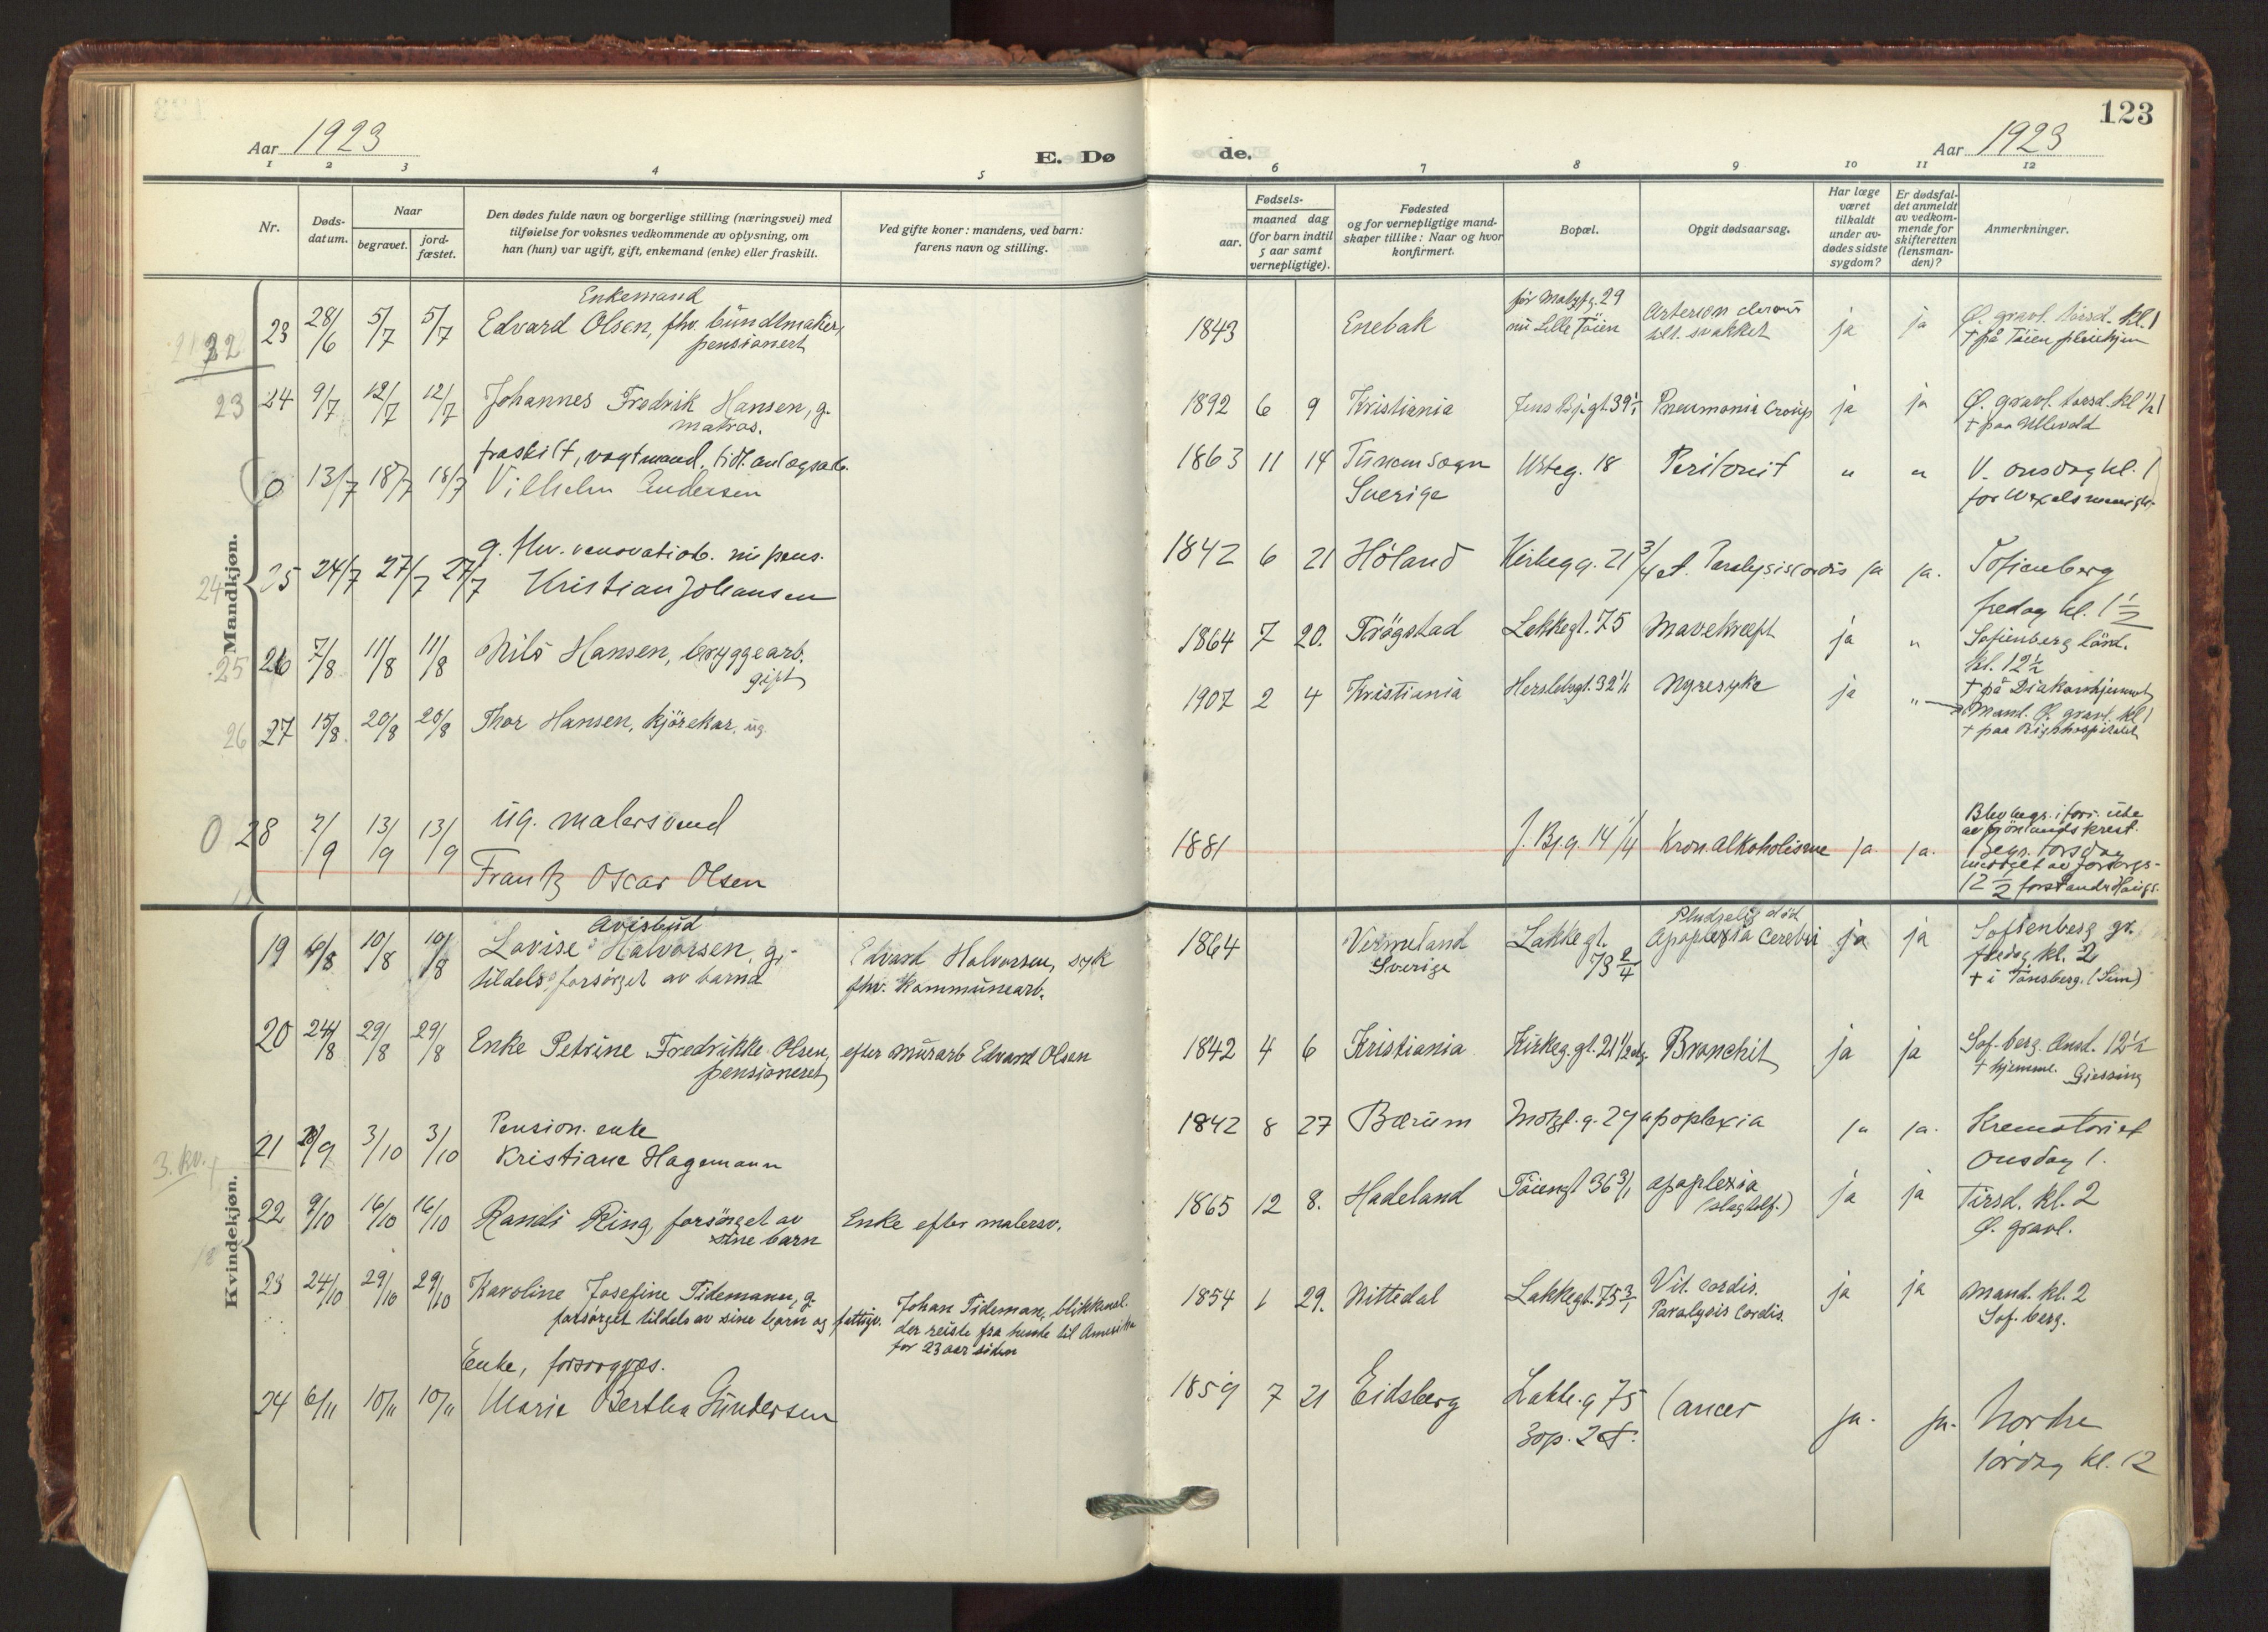 123
Aar 1923
E. Dø
de.
Aar 1923
1 2 3 4 5 6 7 8 9 10 11 12
Nr.
Døds-
datum.
Naar
begravet.
jord-
fæstet.
Den dødes fulde navn og borgerlige stilling (næringsvei) med
tilføielse for voksnes vedkommende av oplysning, om
han (hun) var ugift, gift, enkemand (enke) eller fraskilt.
Ved gifte koner: mandens, ved barn:
farens navn og stilling.
Fødsels-
aar.
maaned dag
(for barn indtil
5 aar samt
vernepligtige).
Fødested
og for vernepligtige mand-
skaper tillike: Naar og hvor
konfirmert.
Bopæl.
Opgit dødsaarsag.
Har læge
været
tilkaldt
under av-
dødes sidste
sygdom?
Er dødsfal-
det anmeldt
av vedkom-
mende for
skifteretten
(lensman-
den)?
Anmerkninger.
Mandkjøn.
Enkemand
23 28/6 5/7 5/7 Edvard Olsen, fhv. bundtmaker,
pensionert
1843 Enebak
nu Lille Töien
ja ja Ø. gravl. torsd. kl. 1
+ på Töien pleiehjem
23 24 9/7 12/7 12/7 Johannes Fredrik Hansen, g.
matros.
1892 6 9 Kristiania Jens Bj. gt. 39 Pneumonia Croup ja ja Ø. gravl. torsd. kl 1/2 1
+ paa Ullevold
fraskilt, vagtmand, tidl. anlegsarb.
0 13/7 18/7 18/7 Vilhelm Andersen
1863 11 14 Tunem Sogn Usteg. 18 Peritonit " " V. onsdag kl. 1
Sverige
g. fhv. renovatiob. nu pens.
24 25 24/7 27/7 27/7 Kristian Johansen
1842 6 21 Höland Kirkegg. 21 3/4 et. Paralysis cordis ja ja. Sofienberg
fredag kl. 1 1/2
25 26 7/8 11/8 11/8 Nils Hansen, bryggearb.
gift
1864 7 20. Trögstad Lakkegt. 75 Mavekræft ja " Sofienberg lörd.
kl. 12 1/2
+ på Diakonhjemmet
26 27 15/8 20/8 20/8 Thor Hansen, kjörekar, ug.
1907 2 4 Kristiania Herslebsgt. 32 1/1 Nyresyke ja " Mand. Ø. gravl. kl 1
+ paa Rigshospitalet
0 28 2/9 13/9 13/9 ug. malersvend
Frantz Oscar Olsen
1881 J. Bj. g. 14 1/4 Kron. alkoholisme ja ja.
Begr. torsdag
12 1/2
Kvindekjøn.
Avisbud
19 6/8 10/8 10/8 Lovise Halvorsen, g.
tildels forsörget av barna
Edvard Halvorsen, syk
fhv. Kommunearb.
1864 Vermeland Lakkegt. 73 2/4
Sverige
Pludselig död
Apoplexia Cerebri ja ja Sofienberg gr.
fredag kl. 2
+ i Tönsberg. (Sem)
20 24/8 29/8 29/8 Enke Petrine Fredrikke Olsen,
pensioneret
efter murarb Edvard Olsen
1842 4 6 Kristiania Kirkeg. gt. 21 Bronchit ja ja Sof. berg. Onsd. 12 1/2
+ hjemme. Giessing
3. kv.
Pension. enke
21 9 3/10 3/10 Kristiane Hagemann
1842 8 27 Bærum Motzf. g. 29 apoplexia ja ja. Krematoriet
Onsdag 1.
22 9/10 16/10 16/10 Randi Ring, forsörget av
sine barn
Enke efter malersv.
1865 12 8. Hadeland Töiengt 36 3/1 apoplexia
(slagtilf.)
ja ja Tirsd. kl. 2
Ø. gravl.
23 24/10 29/10 29/10 Karoline Josefine Tidemann, g.
forsörget tildels av sine barn og fattigv.
Johan Tideman, blikkensl.
der reiste fra hende til Amerika
for 23 aar siden
1854 1 29. Nittedal Lakkegt. 75 3/1 Vit. cordis.
Paralysis Cordis.
ja ja Mand. kl. 2
Sof. berg.
Enke, forsorgvæs.
24 6/11 10/11 10/11 Marie Bertha Gundersen
1859 7 21 Eidsberg Lakke. g 75
3 op. 2 et.
Cancer ja. ja. Nordre
lördag kl. 12